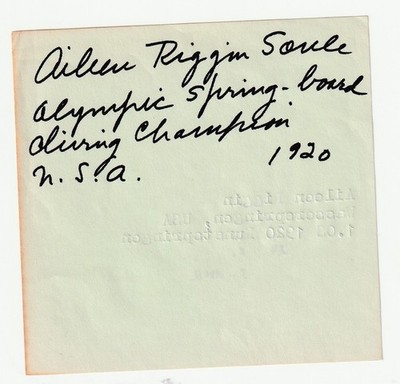 Aileen Riggin Soule
Olympic Spring-board
diving Champion
1920
U.S.A.
Aileen Riggin
Wasserspringen, USA
1.OS 1920 Kunstspringen